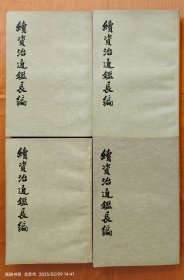 續資治通鑑長編
續資治通鑑長編
續資治通鑑長編
續資治通鑑長編
2025/02/09 14:41